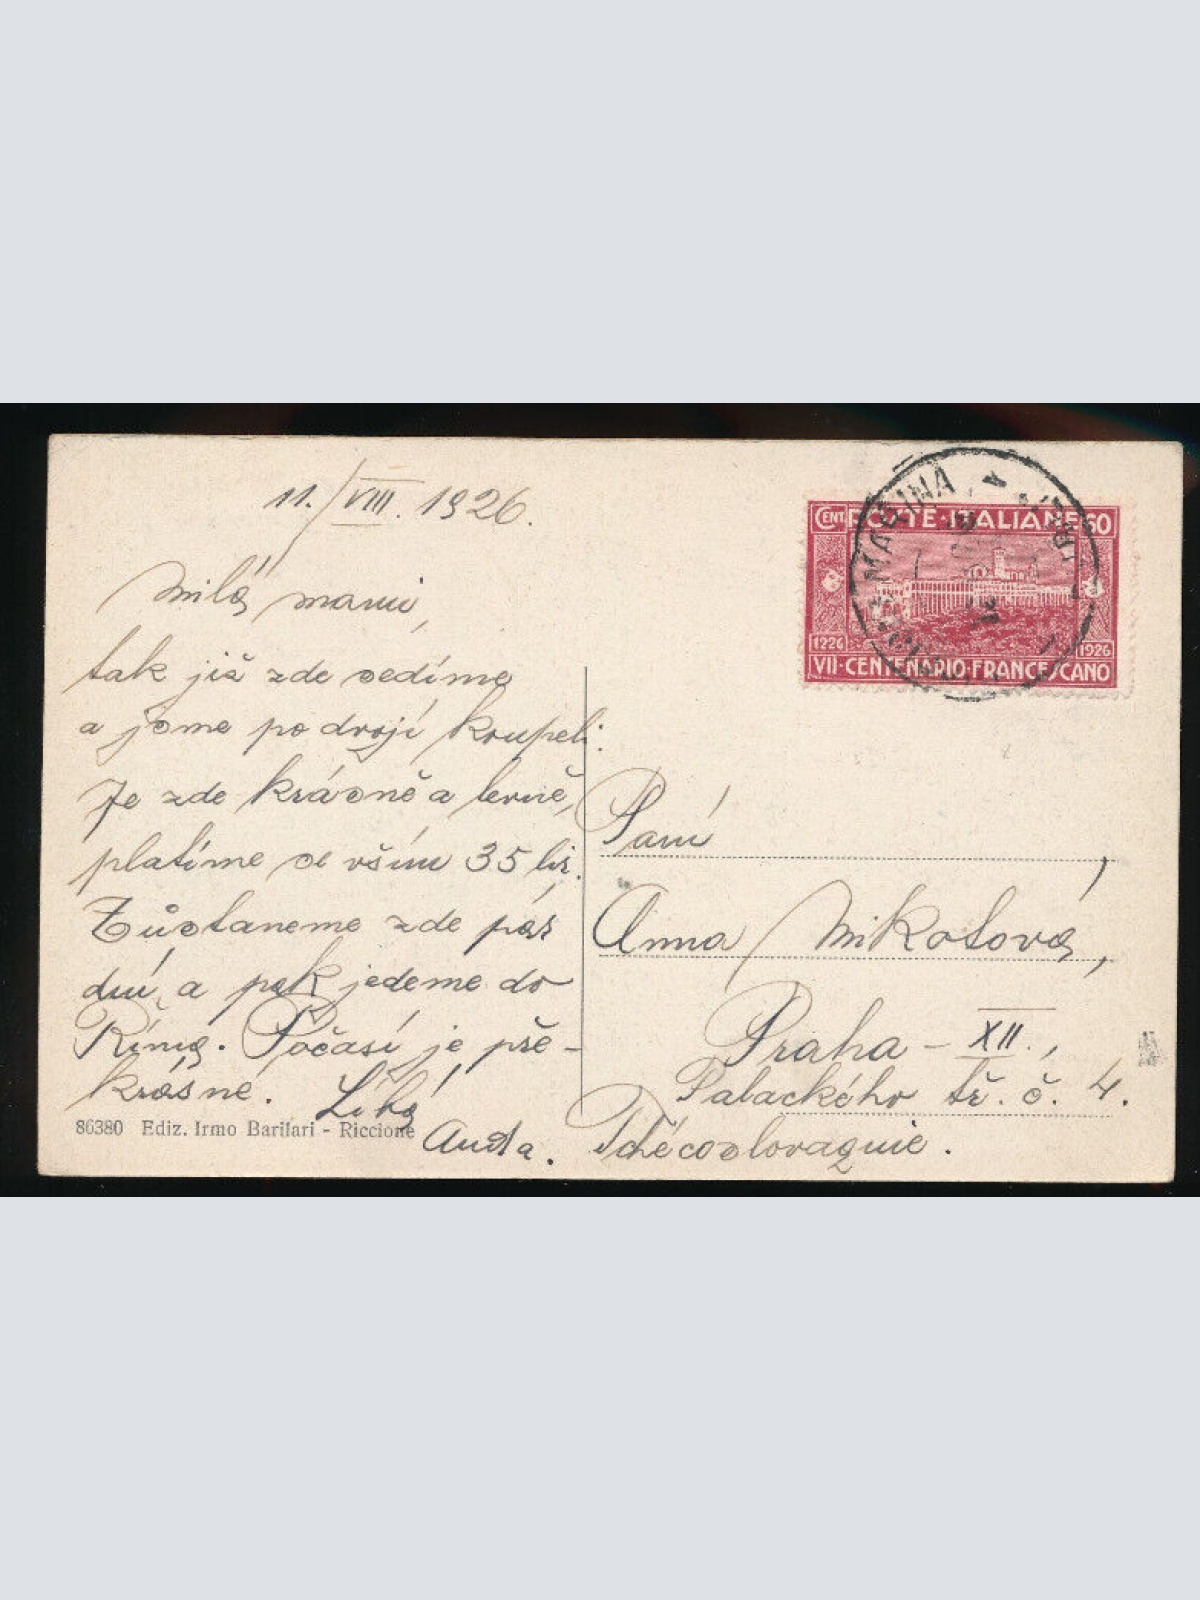 11./VIII. 1926.
Milá mami,
tak již zde sedíme
a jsme po dvojí koupeli.
Je zde krásně a levně,
platíme se vším 35 lir.
Zůstaneme zde pár
dní, a pak jedeme do
Říma. Počasí je pře-
krásné. Líbá
Anda.
86380 Ediz. Irmo Barilari - Riccione
CENT. POSTE · ITALIANE 60
1226 1926
VII · CENTENARIO · FRANCESCANO
MARINA
Paní
Anna Mikotová,
Praha - XII.,
Palackého tř. č. 4.
Tchécoslovaquie.